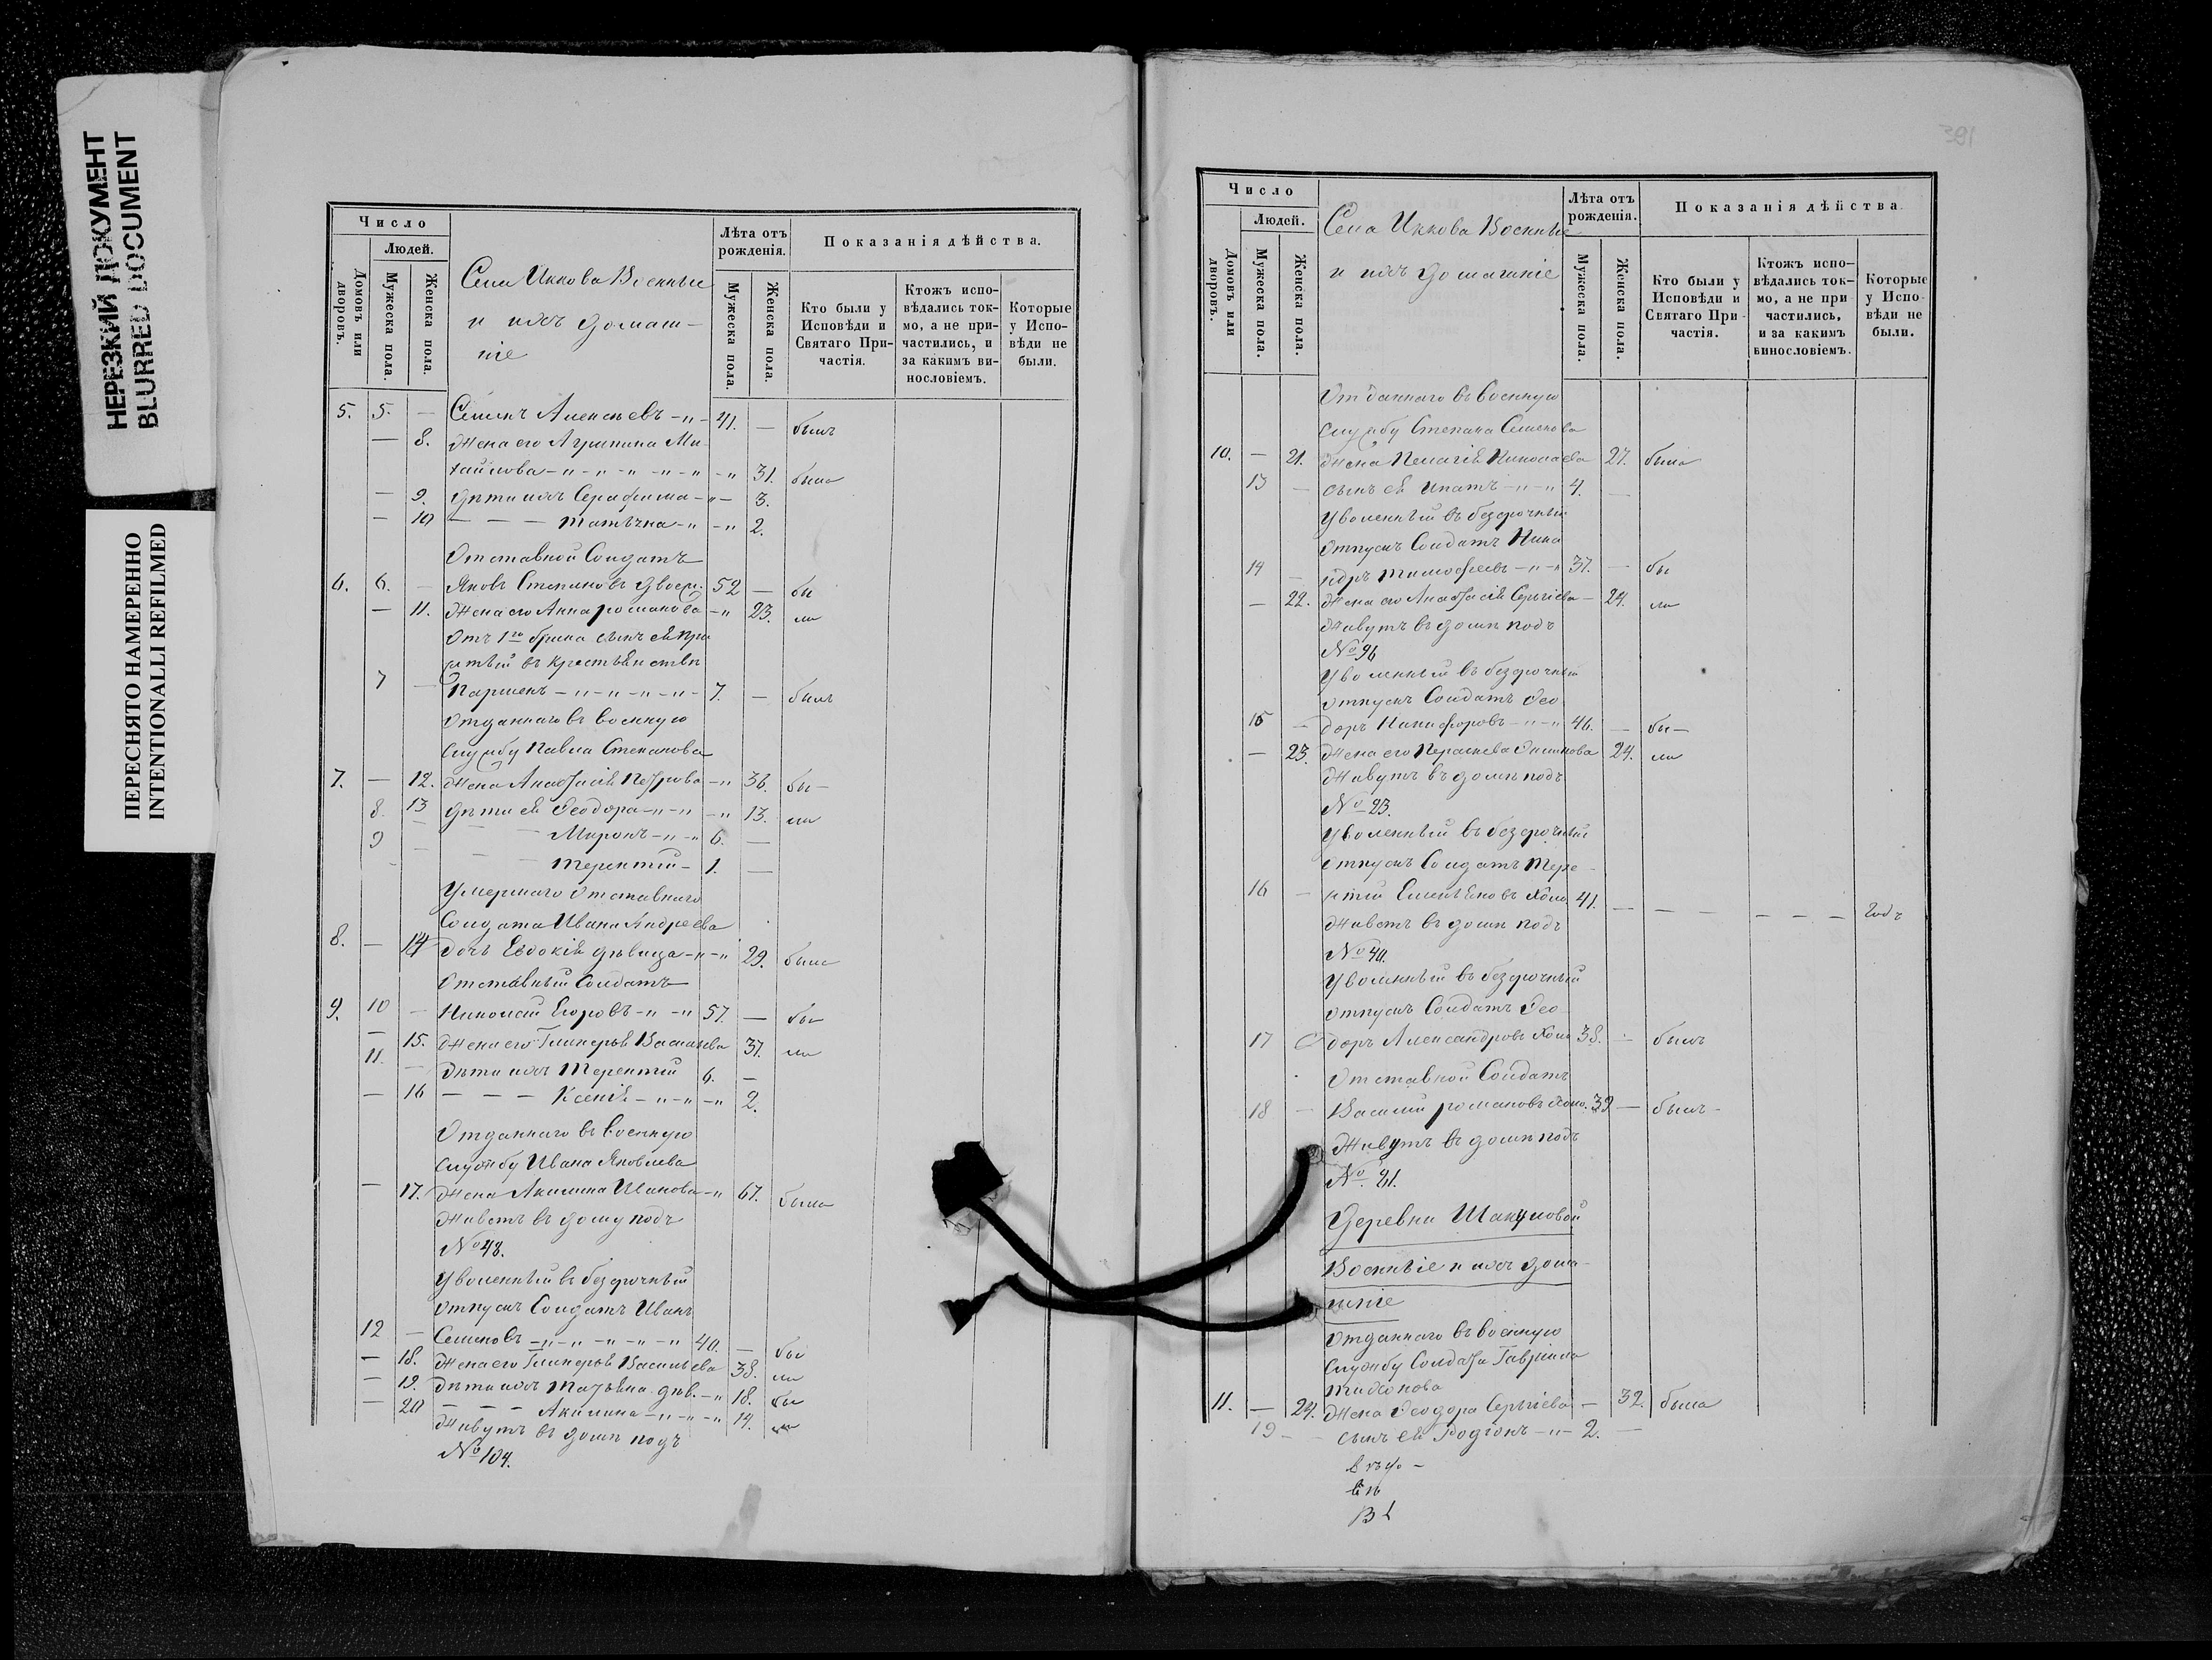 НЕРЕЗКИЙ ДОКУМЕНТ
BLURRED DOCUMENT
ПЕРЕСНЯТО НАМЕРЕННО
INTENTIONALLI REFILMED
Число
Людей.
Домовъ или дворовъ.
Мужеска пола.
Женска пола.
Села Иккова Военные
и ихъ домаш-
ніе
Лѣта отъ рожденія.
Мужеска пола.
Женска пола.
Показанія дѣйства.
Кто были у Исповѣди и Святаго При-частія.
Ктожъ испо-вѣдались ток-мо, а не при-частились, и за какимъ ви-нословіемъ.
Которые у Испо-вѣди не были.
5. 5. — Семенъ Алексѣевъ -"- 41. — былъ
— 8. Жена его Агрипина Ми-
хайлова -"-"-"-"-" -" 31. была
— 9. Дѣти ихъ Серафима -"- 3.
— 10 — — — Татьяна -" -" 2.
Отставной Солдатъ
6. 6. — Яковъ Степановъ двоеж. 52 — бы
— 11. Жена его Анна Романова -" 23. ли
Отъ 1го брака сынъ ея при
житый въ крестьянствѣ
7 — Парменъ -"-"-"-"- 7. — былъ
Отданнаго въ военную
службу Павла Степанова
7. — 12. Жена Анастасія Петрова -" 36. бы-
8. 13 Дѣти ея Ѳеодора -"-" -" 13. ли
9 — — Миронъ -"-" 6. —
- — — Терентій - 1. —
Умершаго отставнаго
Солдата Ивана Андреева
8. — 14 Дочь Евдокія дѣвица -"-" 29. была
Отставный Солдатъ
9. 10 — Николай Егоровъ -"-" 57. — бы
— 15. Жена его Гликерія Васильева 37. ли
11. — Дѣти ихъ Терентій 6. —
— 16 — — — Ксенія -"-" -" 2.
Отданнаго въ военную
службу Ивана Яковлева
— 17. Жена Акилина Иванова -" 67. была
Живетъ въ дому подъ
№ 48.
Уволенный въ безсрочный
отпускъ Солдатъ Иванъ
12 — Семеновъ -"-"-"-"-" 40. — бы
— 18. Жена его Гликерія Васильева 38. ли
— 19. Дѣти ихъ Татьяна дѣв. -" 18. бы
— 20 — — — Акилина -"-"-" 14. ли
Живутъ въ домѣ подъ
№ 104.
195
Число
Людей.
Домовъ или дворовъ.
Мужеска пола.
Женска пола.
Села Иккова Военные
и ихъ домашніе
Лѣта отъ рожденія.
Мужеска пола.
Женска пола.
Показанія дѣйства.
Кто были у Исповѣди и Святаго При-частія.
Ктожъ испо-вѣдались ток-мо, а не при частились, и за какимъ винословіемъ.
Которые у Испо-вѣди не были.
Отданнаго въ военную
службу Степана Семенова
10. — 21. Жена Пелагія Николаева 27. была
13 — сынъ ея Ипатъ -"-" 4. —
Уволенный въ безсрочный
отпускъ Солдатъ Ника
14 — ндръ Тимофеевъ -"-" 37. — бы
— 22. Жена его Анастасія Сергіева - 24. ли
Живутъ въ домѣ подъ
№ 96
Уволенный въ безсрочный
отпускъ Солдатъ Ѳео
15 — доръ Никифоровъ -"-" 46. — бы-
— 23. Жена его Параскева 24. ли
Живутъ въ домѣ подъ
№ 23.
Уволенный въ безсрочный
отпускъ Солдатъ Тере-
16 — нтій Емельяновъ Холо. 41. — — — — — —
Живетъ въ домѣ подъ
№ 40.
Уволенный въ безсрочный
отпускъ Солдатъ Ѳео-
17 доръ Александровъ Холо 38. — былъ
Отставной Солдатъ
18 — Василій Романовъ Холо. 39 — былъ-
Живутъ въ домѣ подъ
№ 81.
Деревни Шакуловой
Военные и ихъ дома-
шніе
Отданнаго въ военную
службу Солдата Гавріила
Тихонова
11. — 24. Жена Ѳеодора Сергіева - 32. была
19 - - сынъ ея Родіонъ -"- 2. —